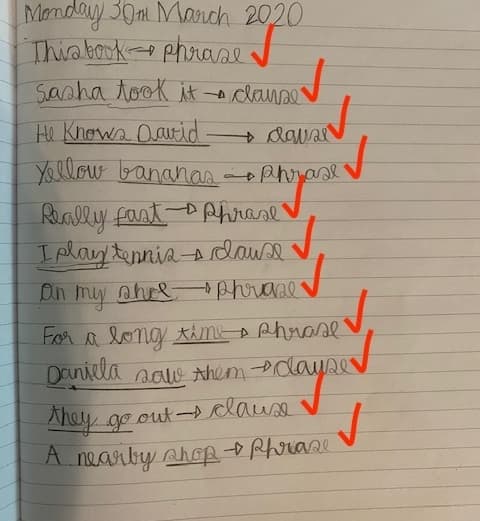 Monday 30TH March 2020
This book → phrase
Sasha took it → clause
He Knows David → clause
Yellow bananas → Phrase
Really fast → Phrase
I play tennis → clause
On my shoe → phrase
For a long time → Phrase
Daniela saw them → clause
they go out → clause
A nearby shop → Phrase